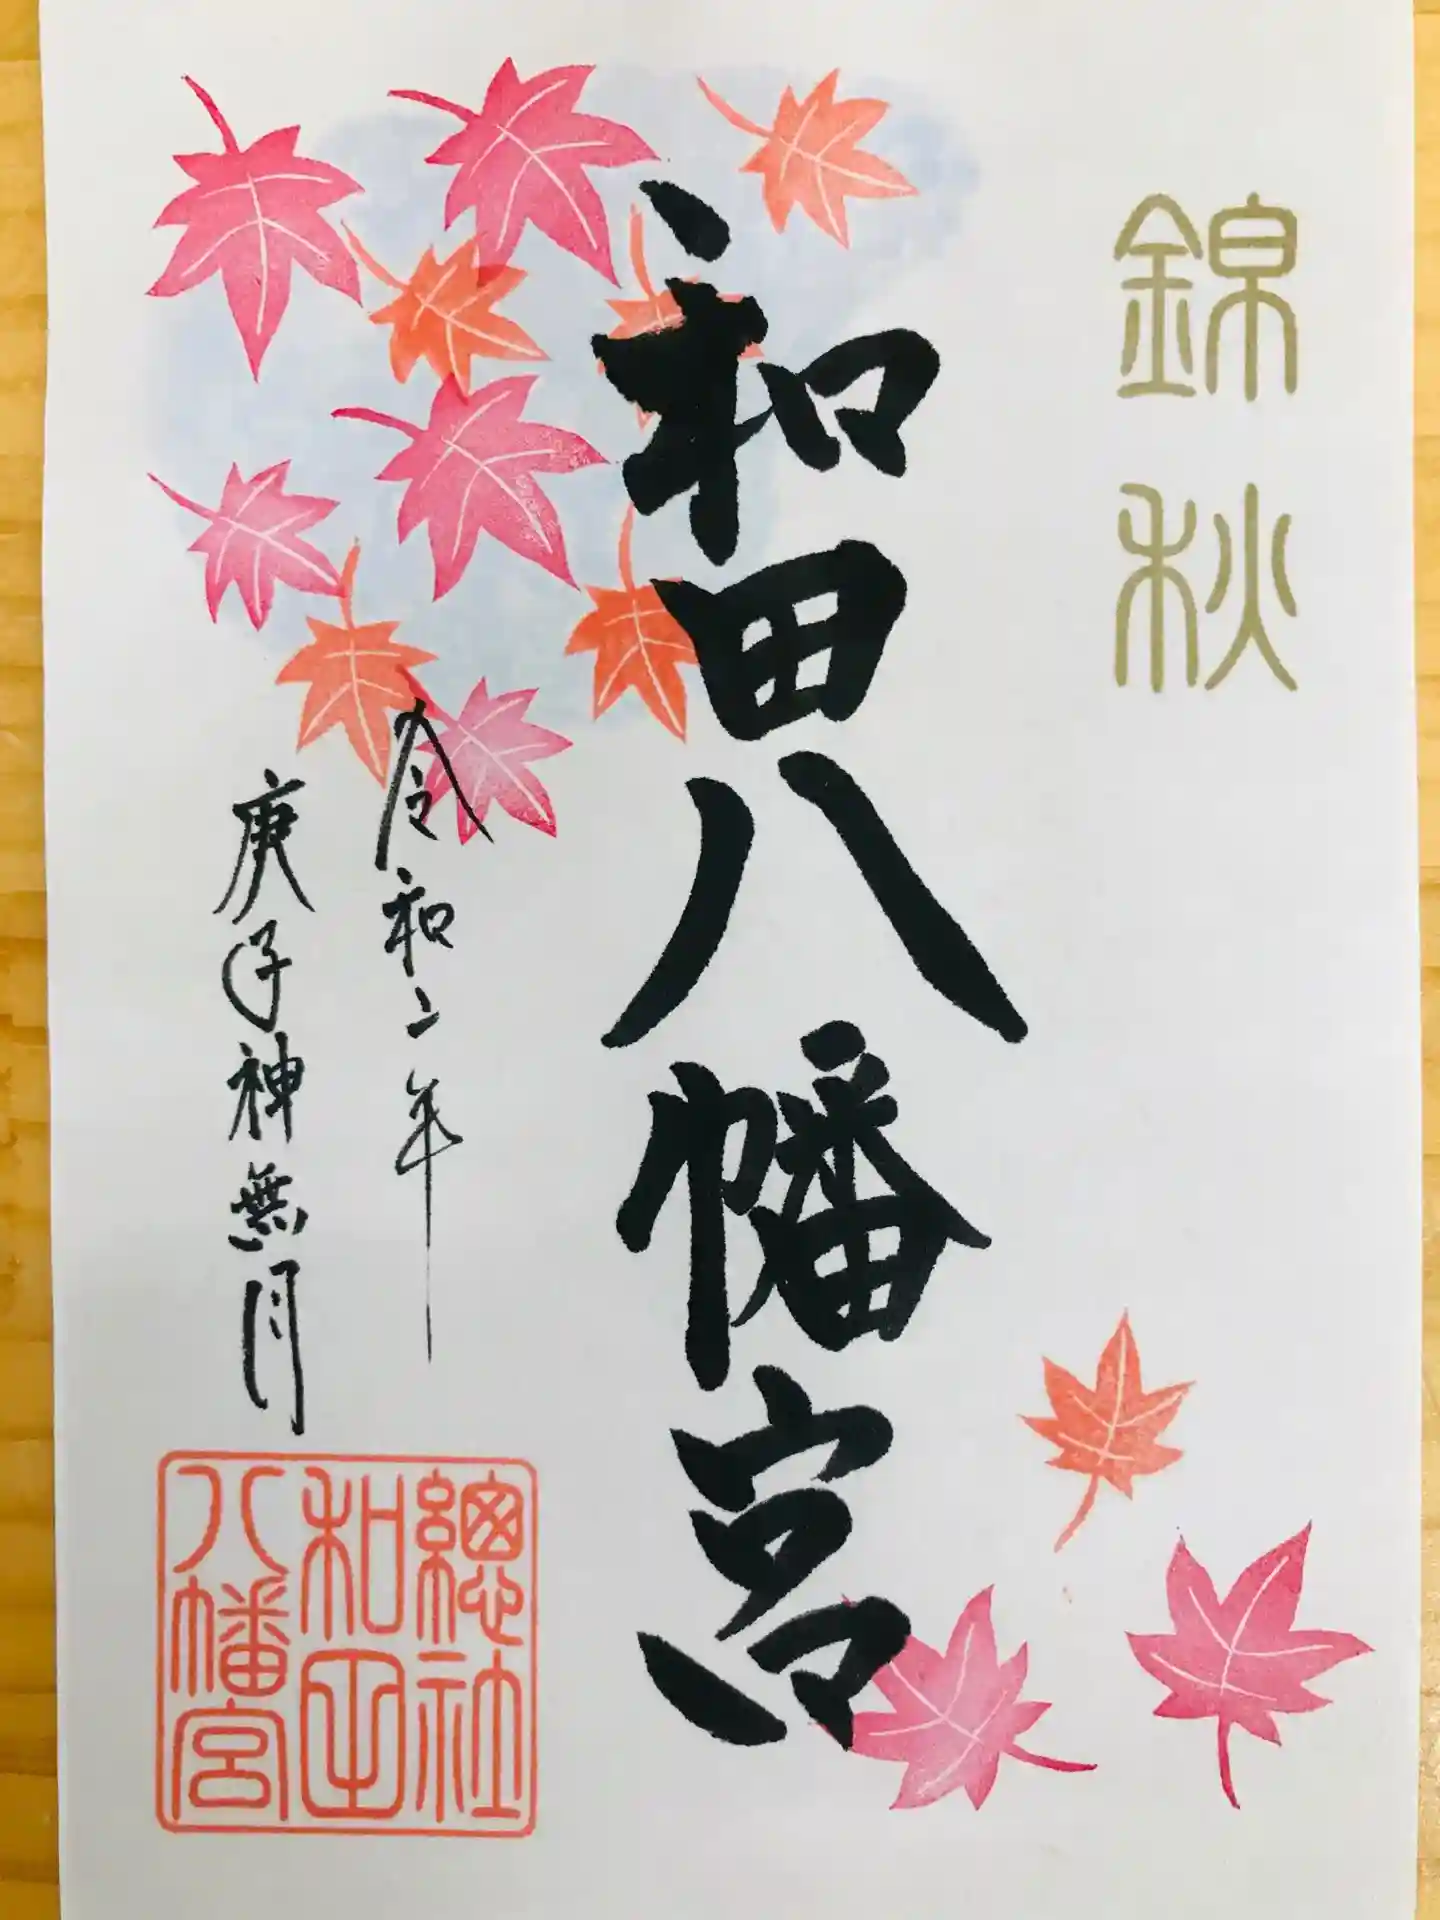 錦秋
和田八幡宮
令和二年
庚子神無月
總社
和田
八幡宮